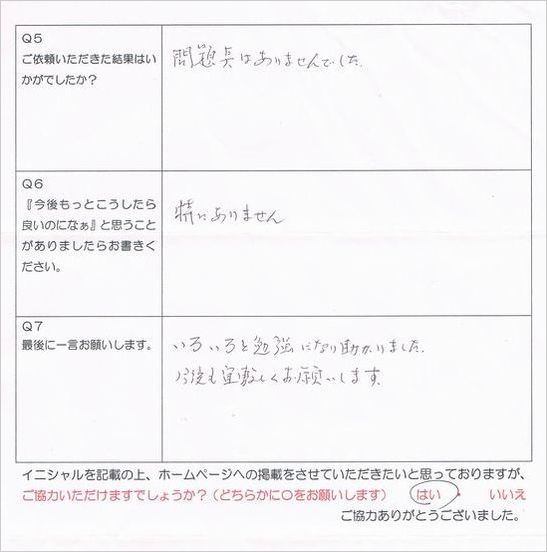 Q5
ご依頼いただきた結果はい
かがでしたか？
問題点はありませんでした。
Q6
『今後もっとこうしたら
良いのになぁ』と思うこと
がありましたらお書きく
ださい。
特にありません
Q7
最後に一言お願いします。
いろいろと勉強になり助かりました。
今後も宜敷しくお願いします。
イニシャルを記載の上、ホームページへの掲載をさせていただきたいと思っておりますが、
ご協力いただけますでしょうか？（どちらかに〇をお願いします） はい ・ いいえ
ご協力ありがとうございました。